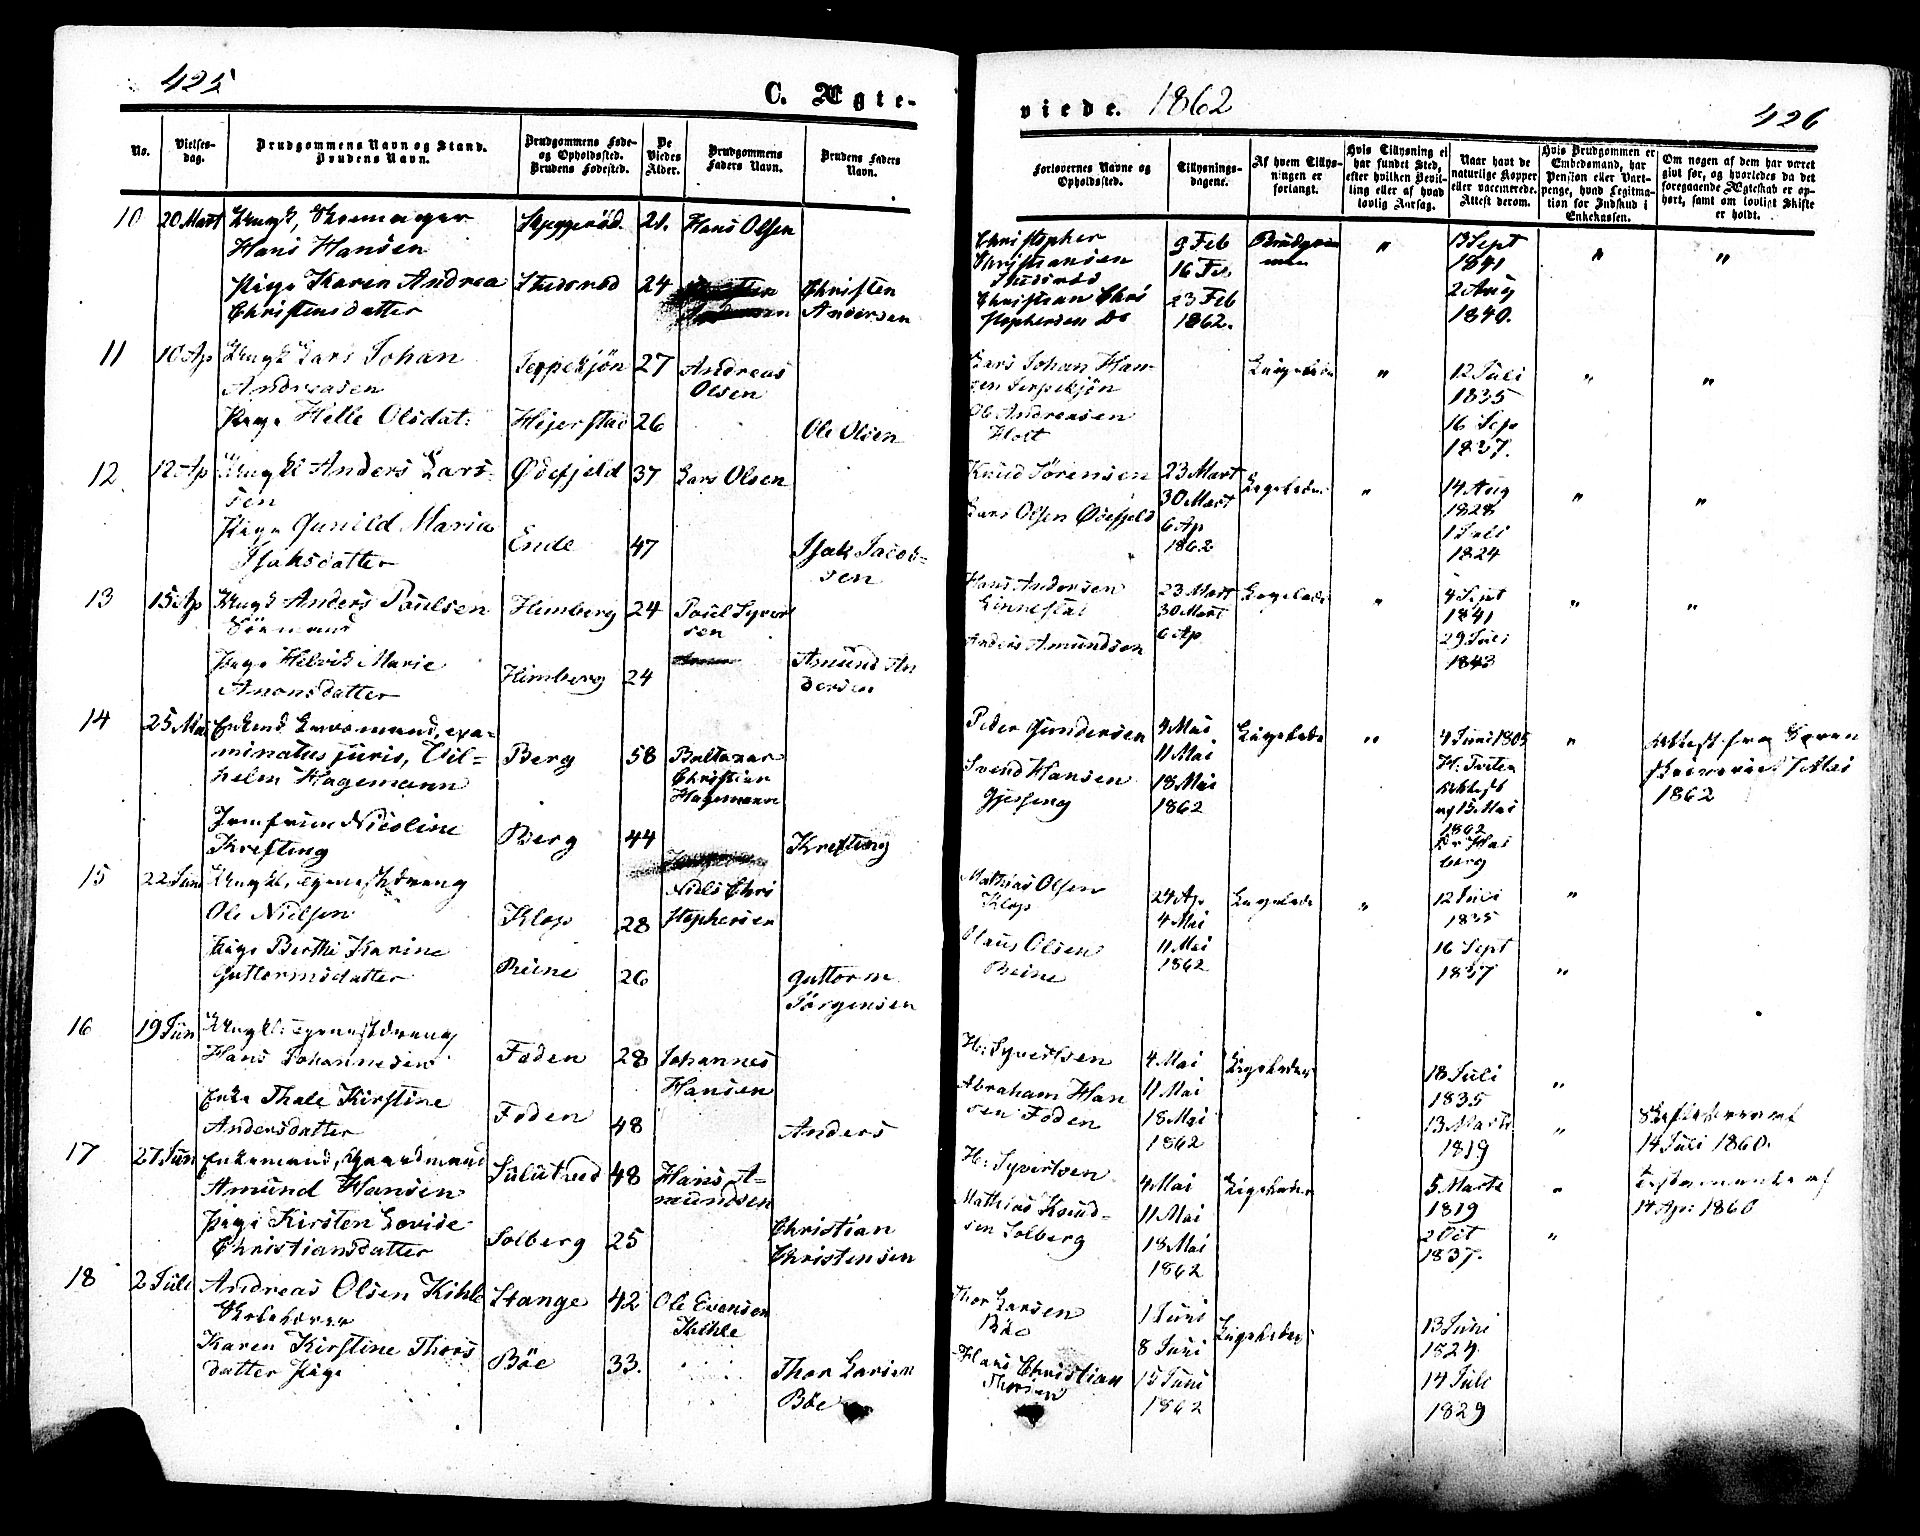 425
C. Ægte-
No.
Vielses-
dag.
Brudgommens Navn og Stand.
Brudens Navn.
Brudgommens Føde-
og Opholdssted.
Brudens Fødested.
De
Viedes
Alder.
Brudgommens
Faders Navn.
Brudens Faders
Navn.
10 20 Mart Ungk,
Hans Hansen
Skjeggerød. 21. Hans Olsen
Pige Karen Andrea
Christensdatter
Stedsrød 24
Christen
Andersen
11 10 Ap Ungk Lars Johan
Andreasen
27 Andreas
Olsen
Pige Helle Olsdat:
Hejerstad 26
Ole Olsen
12 12 Ap Ungkl Anders Lars-
sen
Ødefjeld 37 Lars Olsen
Pige Gunild Maria
Isaksdatter
Ende 47
Isak Jacob-
sen
13 15 Ap Ungk Anders Paulsen
Sömand
Himberg 24 Paul Syvert
sen
Pige Helvik Marie
Amonsdatter
Himberg 24
Amund An
dersen
14 25 Mai Enkemd Gaardmand, exa-
minatus juris, Vil-
helm Hagemann
Berg 58 Baltazar
Christian
Hagemann
Jomfrue Nicoline
Krefting
Berg 44
Krefting
15 22 Jun Ungkl, Tjenestdreng
Ole Nielsen
Klop 28 Niels Chri
stophersen
Pige Berthe Karine
Guttormsdatter
Reine 26
Guttorm
Jörgensen
16 19 Jun Ungkl: Tjenestdreng
Hans Johannesen
Foden 28 Johannes
Hansen
Enke Thale Kirstine
Andersdatter
Foden 48
Anders
17 27 Jun Enkemand, Gaardmand
Amund Hansen
48 Hans A-
mundsen
Pige Kirsten Lovise
Christiansdatter
Solberg 25
Christian
Christensen
18 2 Juli Andreas Olsen Kihle
Skolelærer
Stange 42 Ole Evensen
Kihle
Karen Kirstine Thors
datter Pige
Böe 33.
Thor Larsen
Böe
viede. 1862
426
Forlovernes Navne og
Opholdssted.
Tillysnings-
dagene.
Af hvem Tillys-
ningen er
forlangt.
Hvis Tillysning ei
har fundet Sted,
efter hvilken Bevil-
ling eller af hvad
lovlig Aarsag.
Naar havt de
naturlige Kopper
eller vaccinerede.
Attest derom.
Hvis Brudgommen er
Embedsmand, har
Pension eller Vart-
penge, hvad Legitima-
tion for Indskud i
Enkekassen.
Om nogen af dem har været
gift før, og hvorledes da det
foregaaende Ægteskab er op-
hørt, samt om lovligt Skifte
er holdt.
Christopher
Christiansen
Stedsrød
Christian Chri
stophersen Do
9 Feb
16 Feb
23 Feb
1862.
Brudgom
men
"
13 Sept
1841
2 Aug
1840.
"
"
Lars Johan Han-
sen
Ole Andreasen
Holt
Ligeledes
"
12 Juli
1835
16 Sep
1837.
"
"
Knud Sörensen
Lars Olsen Ødefjeld
23 Mart
30 Mart
6 Ap
1862
Ligeledes
"
14 Aug
1828
1 Juli
1824
"
"
Hans Andersen
Linnestad
Anders Amundsen
23 Mart
30 Mart
6 Ap
Ligeledes
"
4 Sept
1841
29 Juli
1843
"
"
Peder Gundersen
Svend Hansen
Gjessing
4 Mai
11 Mai
18 Mai
1862
Ligeledes
"
4 Juni 1805
H: Tvilen
Attest
af 15 Mai
1862
"
Attest fra Soren
skriveren 7 Mai
1862
Mathias Olsen
Klop
Claus Olsen
Reine
24 Ap
4 Mai
11 Mai
1862
Ligeledes
"
12 Juli
1835
16 Sept
1837
"
"
H: Syvertsen
Abraham Han
sen Foden
4 Mai
11 Mai
18 Mai
1862
Ligeledes
18 Juli
1835
13 Marts
1819
"
"
14 Juli 1860.
H: Syvertsen
Mathias Knud-
sen Solberg
4 Mai
11 Mai
18 Mai
1862
Ligeledes
5 Marts
1819
2 Oct
1837.
"
"
Testamente af
14 Ap: 1860
Thor Larsen
Böe
Hans Christian
Thorsen
1 Juni
8 Juni
15 Juni
1862
Ligeledes
13 Juni
1824
14 Juli
1829